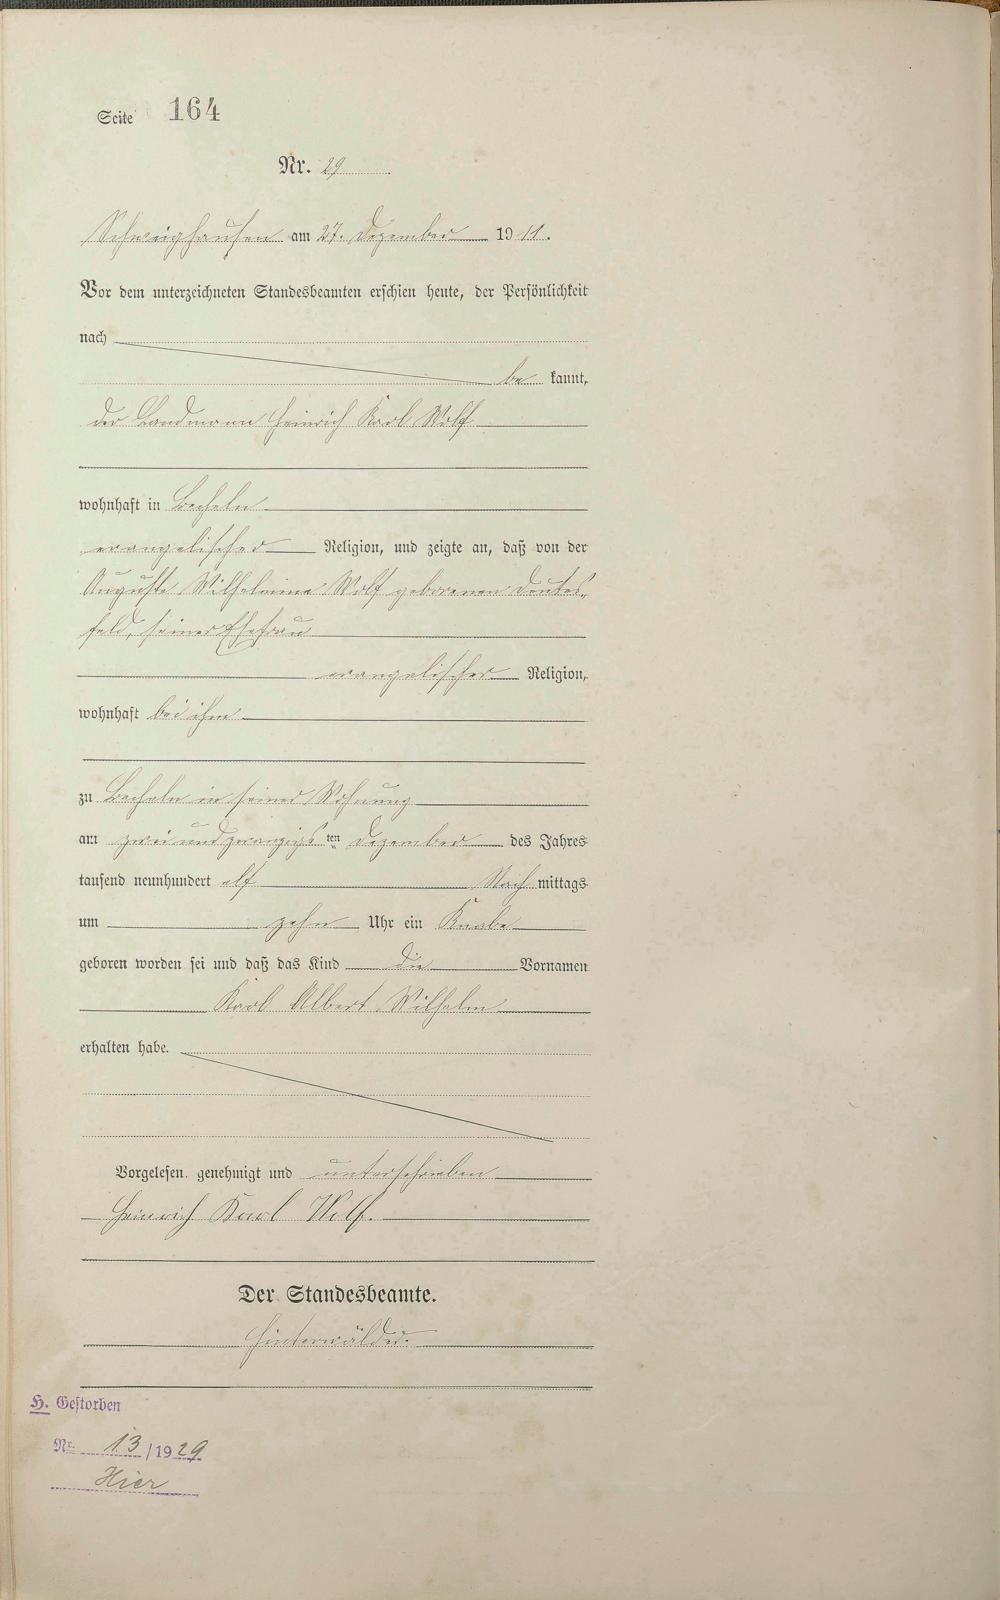 Seite 164
Nr. 29
Schweighausen am 27. Dezember 1911.
Vor dem unterzeichneten Standesbeamten erschien heute, der Persönlichkeit
nach
be kannt,
der Landmann Heinrich Karl Wolf
wohnhaft in Becheln
evangelischer Religion, und zeigte an, daß von der
Auguste Wilhelmine Wolf geborenen Deutes-
feld, seiner Ehefrau
evangelischer Religion,
wohnhaft bei ihm
zu Becheln in seiner Wohnung
am zwei und zwanzigsten Dezember des Jahres
tausend neunhundert elf Nach mittags
um zehn Uhr ein Knabe
geboren worden sei und daß das Kind die Vornamen
Karl Albert Wilhelm
erhalten habe.
Vorgelesen, genehmigt und unterschrieben
Heinrich Karl Wolf.
Der Standesbeamte.
Hinterwälder.
H. Gestorben
Nr. 13/1929
Hier